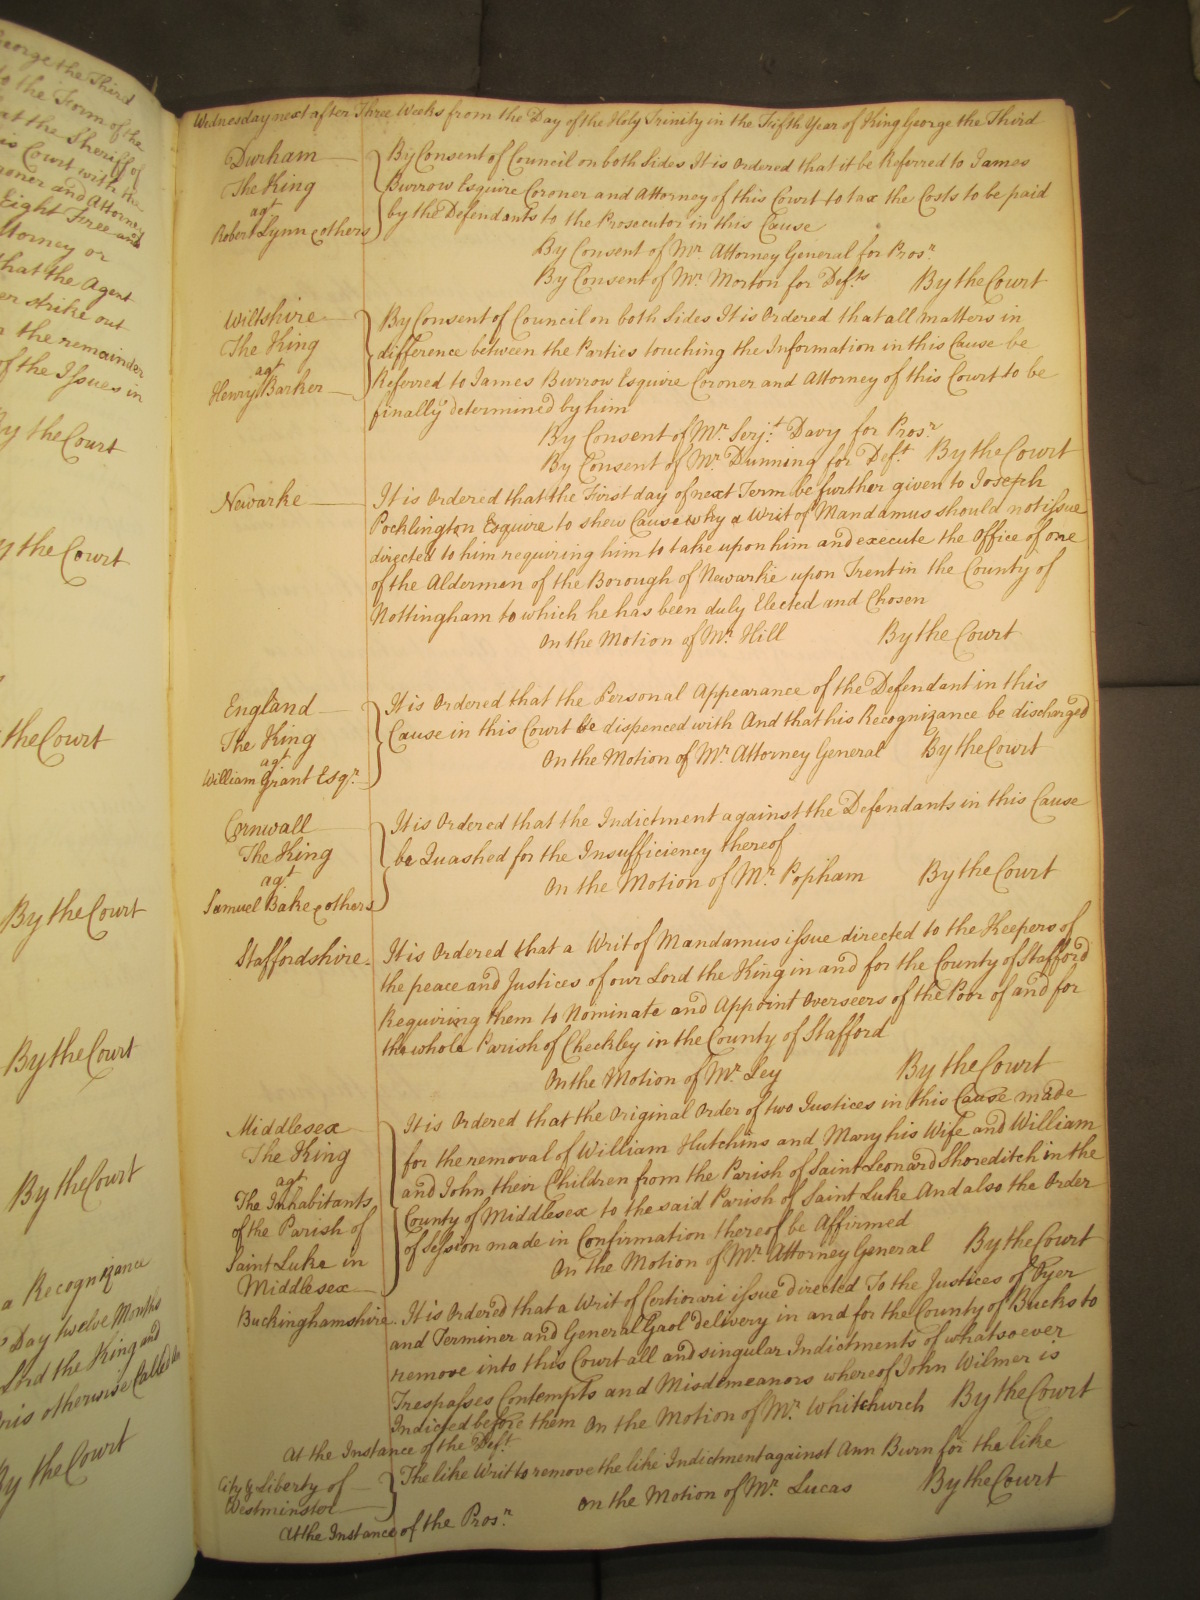 George the Third
to the Form of the
at the Sheriff of
is Court with the
roner and Attorney
Eight Free and
ttorney or
that the Agent
er strike out
the remainder
of the Issues in
By the Court
y the Court
the Court
By the Court
By the Court
By the Court
a Recognizance
Day twelve Months
Lord the King and
otherwise Called
By the Court
Wednesday next after Three Weeks from the Day of the Holy Trinity in the Fifth Year of King George the Third
Durham
The King
agt
Robert Lynn & others
By Consent of Council on both Sides It is Ordered that it be Referred to James
Burrow Esquire Coroner and Attorney of this Court to tax the Costs to be paid
by the Defendants to the Prosecutor in this Cause
By Consent of Mr. Attorney General for Prosr.
By Consent of Mr. Morton for Defts. By the Court
Wiltshire
The King
agt
Henry Barker
By Consent of Council on both Sides It is Ordered that all matters in
difference between the Parties touching the Information in this Cause be
Referred to James Burrow Esquire Coroner and Attorney of this Court to be
finally determined by him
By Consent of Mr. Serjt. Davy for Prosr.
By Consent of Mr. Dunning for Deft. By the Court
Newarke
It is Ordered that the First day of next Term be further given to Joseph
Pocklington Esquire to shew Cause why a Writ of Mandamus should not issue
directed to him requiring him to take upon him and execute the Office of one
of the Aldermen of the Borough of Newarke upon Trent in the County of
Nottingham to which he has been duly Elected and Chosen
On the Motion of Mr. Hill By the Court
England
The King
agt
William Grant Esqr.
It is Ordered that the Personal Appearance of the Defendant in this
Cause in this Court be dispenced with And that his Recognizance be discharged
On the Motion of Mr. Attorney General By the Court
Cornwall
The King
agt.
Samuel Bake & others
It is Ordered that the Indictment against the Defendants in this Cause
be Quashed for the Insufficiency thereof
On the Motion of Mr. Popham By the Court
Staffordshire
It is Ordered that a Writ of Mandamus issue directed to the Keepers of
the peace and Justices of our Lord the King in and for the County of Stafford
Requiring them to Nominate and Appoint Overseers of the Poor of and for
the whole Parish of Checkley in the County of Stafford
On the Motion of Mr. Ley By the Court
Middlesex
The King
agt
The Inhabitants
of the Parish of
Saint Luke in
Middlesex
It is Ordered that the Original Order of two Justices in this Cause made
for the removal of William Hutchins and Mary his Wife and William
and John their Children from the Parish of Saint Leonard Shoreditch in the
County of Middlesex to the said Parish of Saint Luke And also the Order
of Session made in Confirmation thereof be Affirmed
On the Motion of Mr. Attorney General By the Court
Buckinghamshire
It is Ordered that a Writ of Certiorari issue directed To the Justices of Oyer
and Terminer and General Gaol delivery in and for the County of Bucks to
remove into this Court all and singular Indictments of whatsoever
Trespasses Contempts and Misdemeanors whereof John Wilmer is
Indicted before them On the Motion of Mr. Whitchurch By the Court
At the Instance of the Deft.
City & Liberty of
Westminster
The like Writ to remove the like Indictment against Ann Burn for the like
On the Motion of Mr. Lucas By the Court
At the Instance of the Prosr.